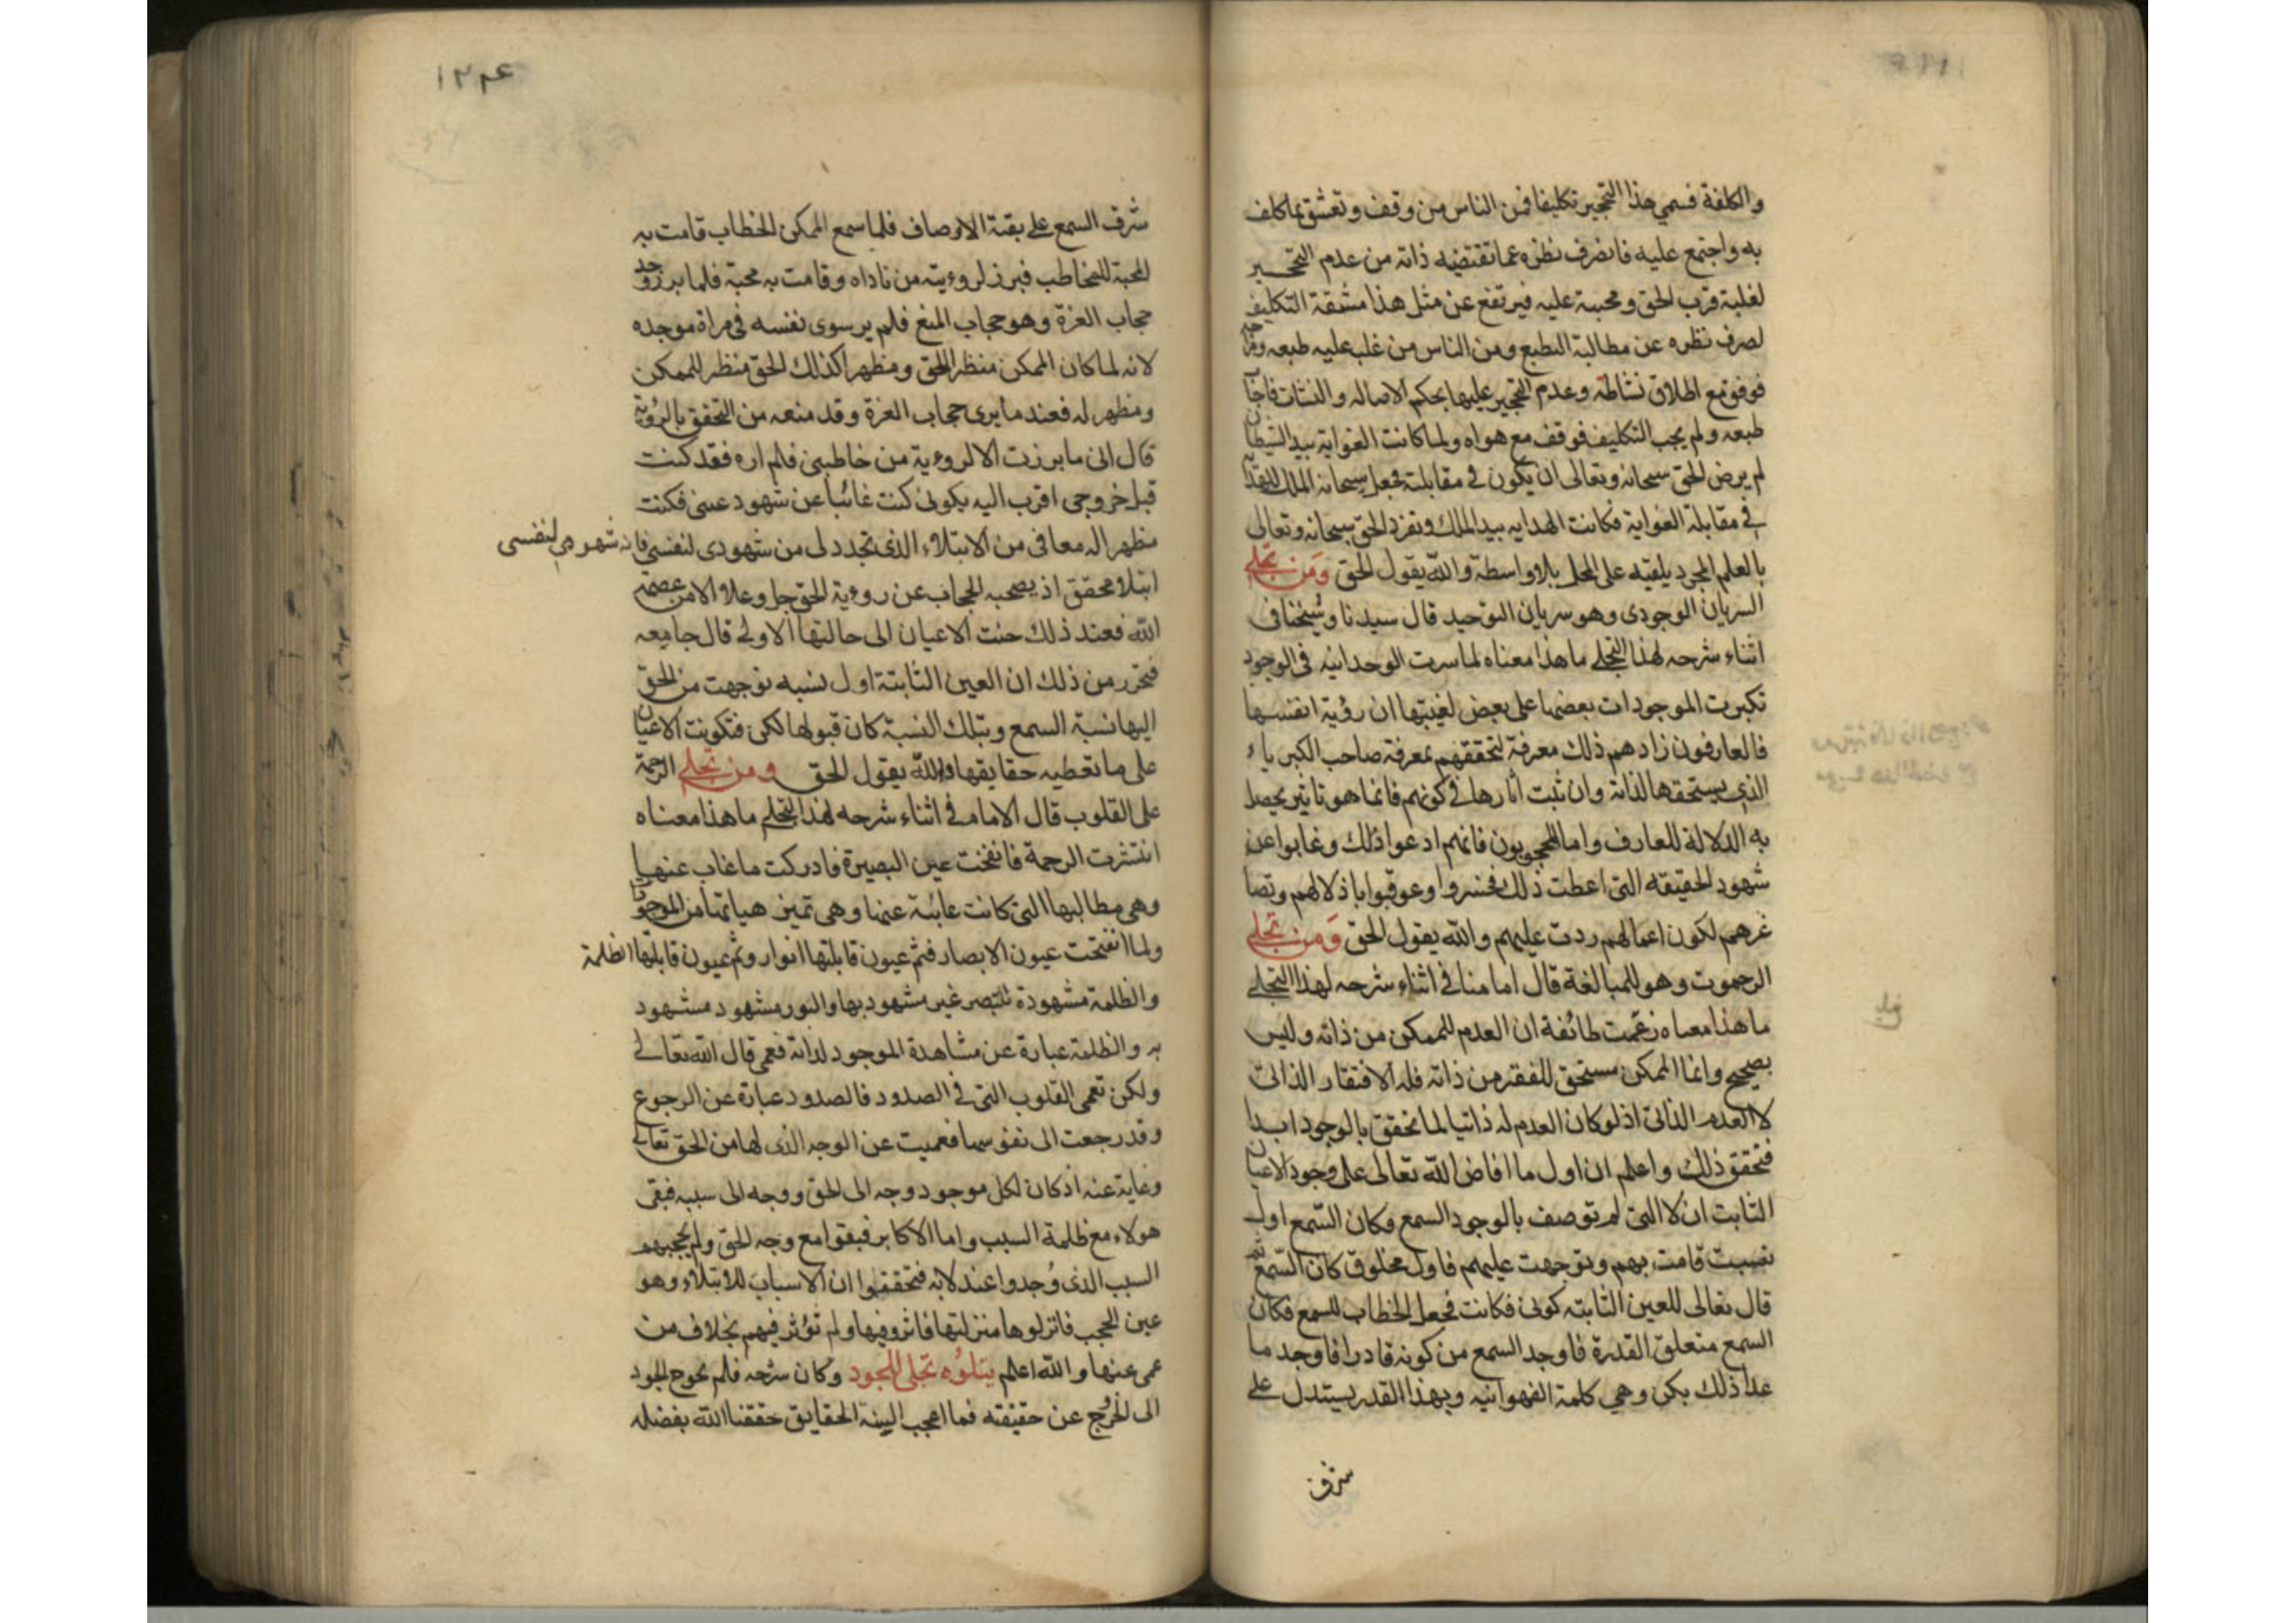 والكلفة فسمي هذا التحجير تكليفا فمن الناس من وقف وتعشق بما كلف
به واجتمع عليه فانصرف نظره عما تقتضيه ذاته من عدم التحجير
لغلبة قرب الحق ومحبته عليه فيرتفع عن مثل هذا مشقة التكليف
لصرف نظره عن مطالبة الطبع ومن الناس من غلب عليه طبعه
فوقف مع اطلاق نشاطه وعدم التحجير عليها بحكم الاصاله والنشات فاجاب
طبعه ولم يجب التكليف فوقف مع هواه ولما كانت الغواية بيد الشيطان
لم يرض الحق سبحانه وتعالى ان يكون في مقابلته فجعل سبحانه الملك
في مقابلة الغواية فكانت الهدايه بيد الملك وتفرد الحق سبحانه وتعالى
بالعلم المجرد يلقيه على المحل بلا واسطة والله يقول الحق ومن تجلي
السريان الوجودى وهو سريان التوحيد قال سيدنا وشيخنا في
اثناء شرحه لهذا التجلي ما هذا معناه لما سرت الوحدانيه في الوجود
تكبرت الموجودات بعضها على بعض لغيبتها ان رؤية انفسها
فالعارفون زادهم ذلك معرفة لتحققهم بمعرفة صاحب الكبرياء
الذي يستحقها لذاته وان ثبت اثارها في كونهم فانما هو تاثير يحصل
به الدلالة للعارف واما المحجوبون فانهم ادعوا ذلك وغابوا عن
شهود الحقيقه التي اعطت ذلك فخسروا وعوقبوا باذلالهم وتصا
غرهم لكون اعمالهم ردت عليهم والله يقول الحق ومن تجلي
الرحموت وهو للمبالغة قال امامنا في اثناء شرحه لهذا التجلي
ما هذا معناه زعمت طائفة ان العدم للممكن من ذاته وليس
بصحيح وانما الممكن مستحق للفقر من ذاته فله الافتقار الذاتى
لا العدم الذاتى اذ لو كان العدم له ذاتيا لما تحقق بالوجود ابدا
فتحقق ذلك واعلم ان اول ما افاض الله تعالى على وجود الاعيان
الثابت ان لا التى لم توصف بالوجود السمع وكان السمع اول
نسبت قامت بهم وتوجهت عليهم فاول مخلوق كان السمع ثم
قال تعالى للعين الثابته كونى فكانت فجعل الخطاب للسمع فكان
السمع متعلق القدرة فاوجد السمع من كونه قادرا فاوجد ما
عدا ذلك بكن وهي كلمة الفهوانيه وبهذا القدر يستدل على
شرف
١٢٣٤
شرف السمع على بقية الاوصاف فلما سمع الممكن الخطاب قامت به
المحبة للمخاطب فبرز لروءيته من ناداه وقامت به محبة فلما برز وجد
حجاب العزة وهو حجاب المنع فلم ير سوى نفسه في مراة موجده
لانه لما كان الممكن منظر الحق ومظهرا كذلك الحق منظر للممكن
ومظهر له فعند ما يرى حجاب العزة وقد منعه من التحقق بالرؤية
قال انى ما برزت الا لروءية من خاطبنى فلم اره فقد كنت
قبل خروجى اقرب اليه بكونى كنت غائبا عن شهود عينى فكنت
مظهرا له معافى من الابتلاء الذى تجدد لى من شهودى لنفسى فانه شهودي لنفسى
ابتلا محقق اذ يصحبه الحجاب عن روءية الحق جل وعلا الا من عصمه
الله فعند ذلك حنت الاعيان الى حالتها الاولى قال جامعه
فتحرر من ذلك ان العين الثابتة اول نسبه توجهت من الحق
اليها نسبة السمع وبتلك النسبة كان قبولها لكن فتكونت الاعيان
على ما تعطيه حقايقها والله يقول الحق ومن تجلي الرحمة
على القلوب قال الامام في اثناء شرحه لهذا التجلي ما هذا معناه
انتشرت الرحمة فانفتحت عين البصيرة فادركت ما غاب عنها
وهى مطالبها التى كانت غائبة عنها وهى تميز هياتها من الموجودا
ولما انفتحت عيون الابصار فثم عيون قابلتها انوار وثم عيون قابلتها الظلمة
والظلمة مشهودة للبصر غير مشهود بها والنور مشهود مشهود
به والظلمة عبارة عن مشاهدة الموجود لذاته فعمى قال الله تعالى
ولكن تعمى القلوب التى في الصدود فالصدود عبارة عن الرجوع
وقد رجعت الى نفوسها فعميت عن الوجه الذى لها من الحق تعالى
وغاية عنه اذ كان لكل موجود وجه الى الحق ووجه الى سببه فبقى
هولاء مع ظلمة السبب واما الاكابر فبقوا مع وجه الحق ولم يحجبهم
السبب الذى وجدوا عنده لانه فتحققوا ان الاسباب للابتلاء وهو
عين الحجب فانزلوها منزلتها فاثروفيها ولم تؤثر فيهم بخلاف من
عمى عنها والله اعلم يتلوه تجلى الجود وكان شرحه فلم يحوج الجود
الى الخروج عن حقيقته فما اعجب السنة الحقايق حققنا الله بفضله